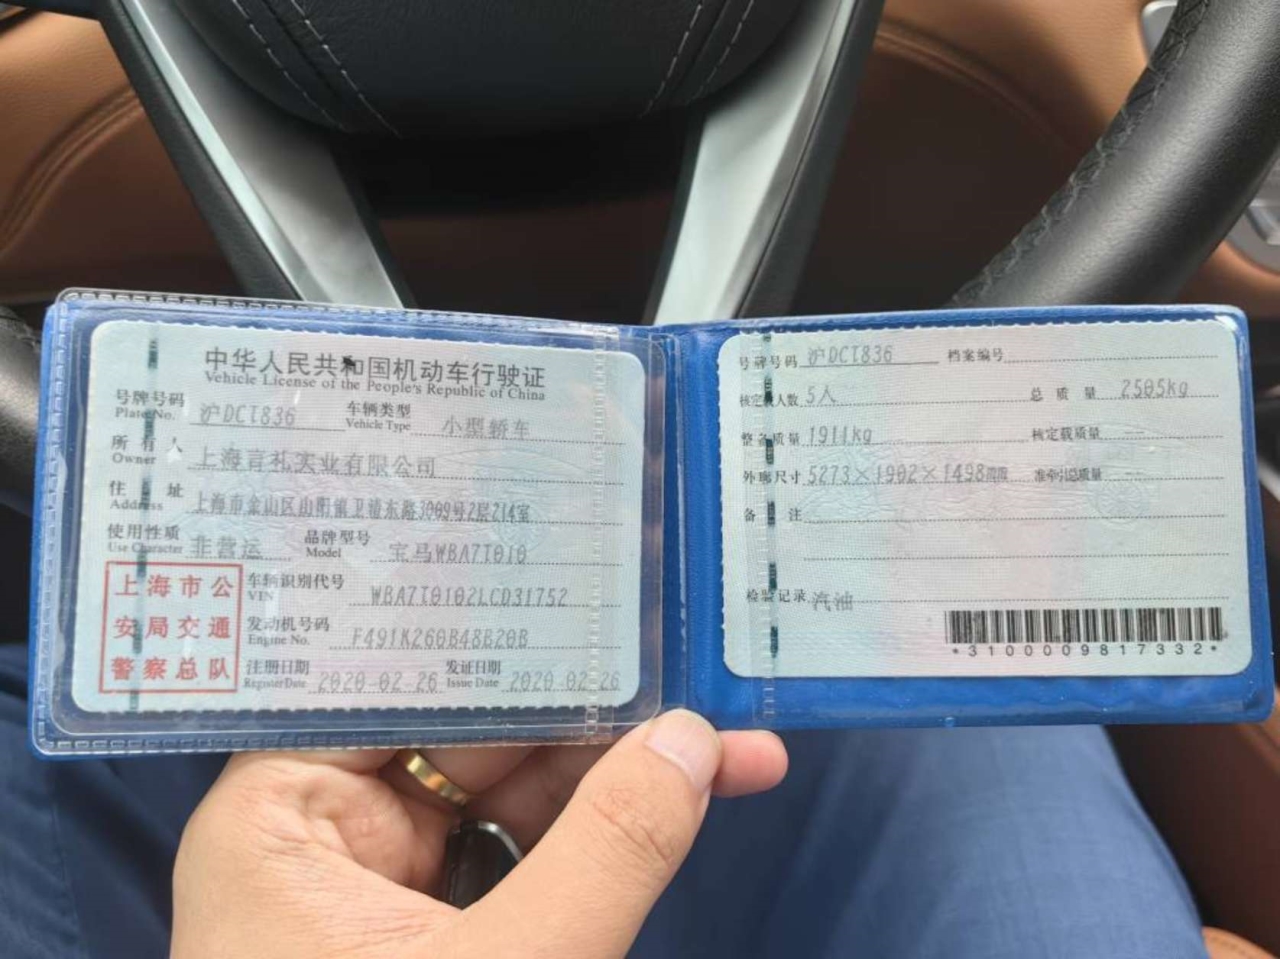 中华人民共和国机动车行驶证
Vehicle License of the People's Republic of China
号牌号码 沪DCT836 车辆类型 小型轿车
Plate No. Vehicle Type
所有人 上海言礼实业有限公司
Owner
住址 上海市金山区山阳镇卫清东路3009号2层214室
Address
使用性质 非营运 品牌型号 宝马WBA7T010
Use Character Model
上海市公
安局交通
警察总队
车辆识别代号 WBA7T0102LCD31752
VIN
发动机号码 F491K260B48B20B
Engine No.
注册日期 2020-02-26 发证日期 2020-02-26
Register Date Issue Date
号牌号码 沪DCT836 档案编号
核定载人数 5人 总质量 2505kg
整备质量 1911kg 核定载质量 --
外廓尺寸 5273×1902×1498mm 准牵引总质量 --
备注
检验记录 汽油
*3100009817332*